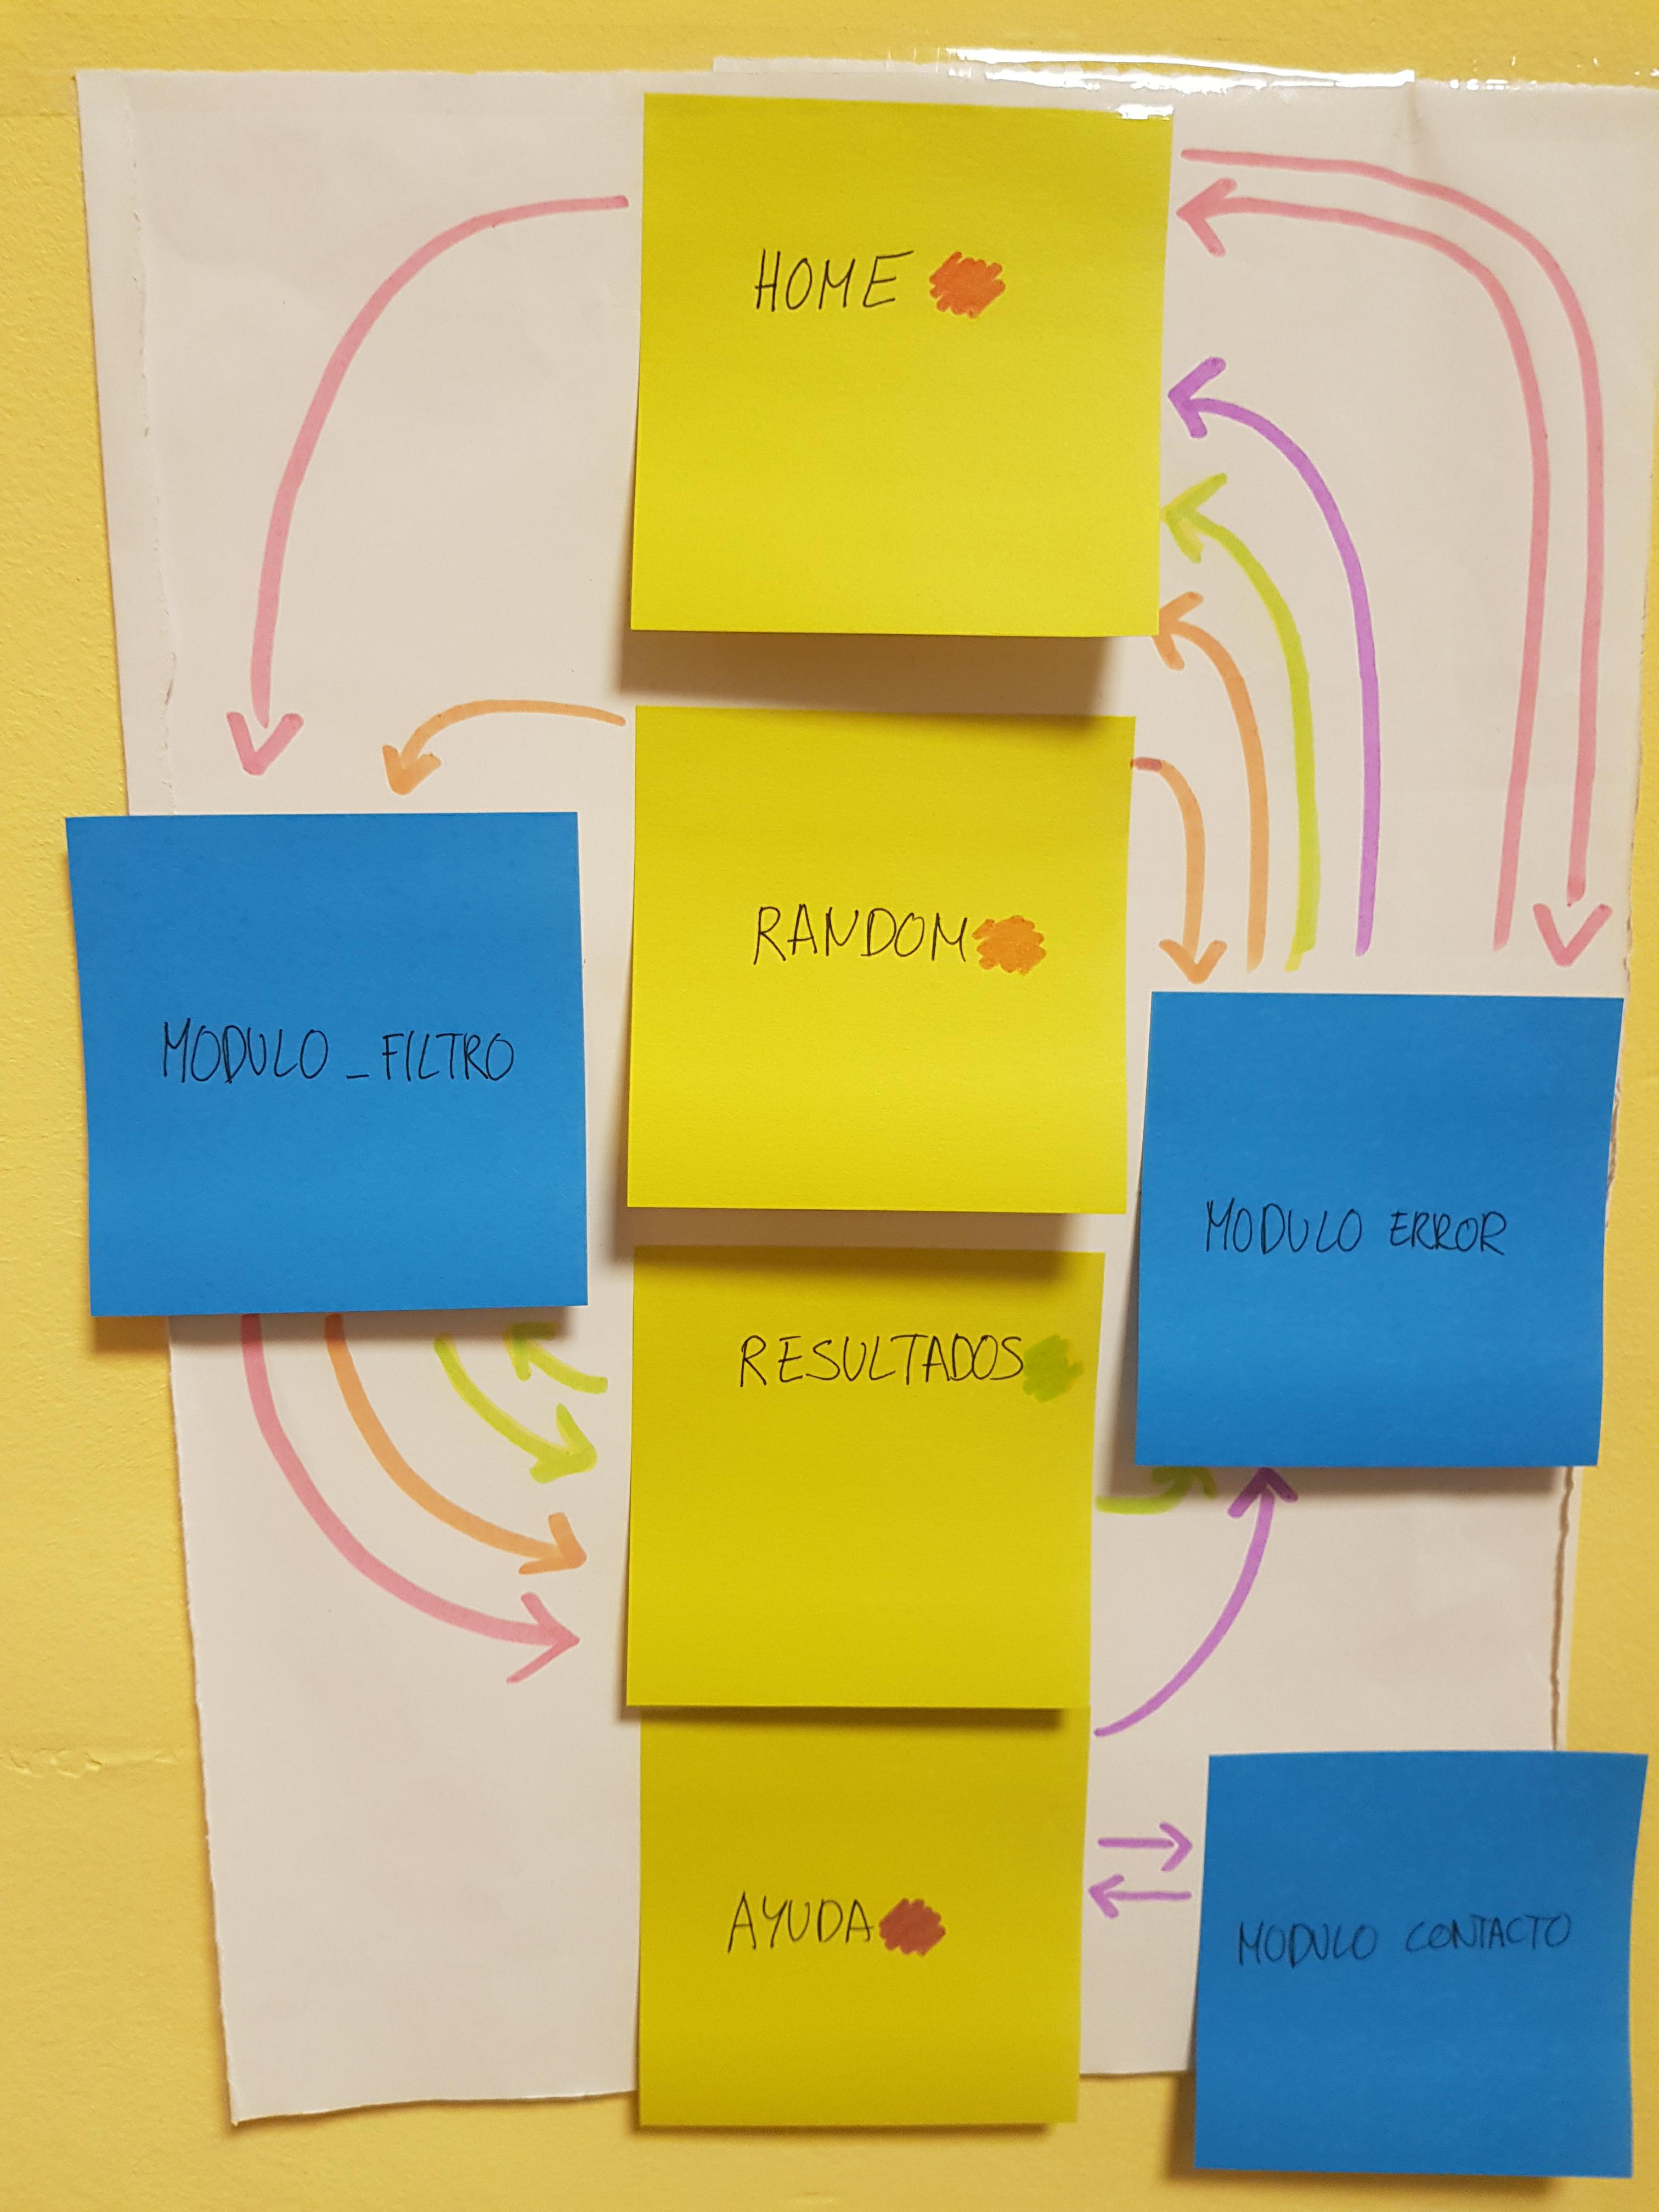 HOME
RANDOM
MODULO_FILTRO
MODULO ERROR
RESULTADOS
AYUDA
MODULO CONTACTO